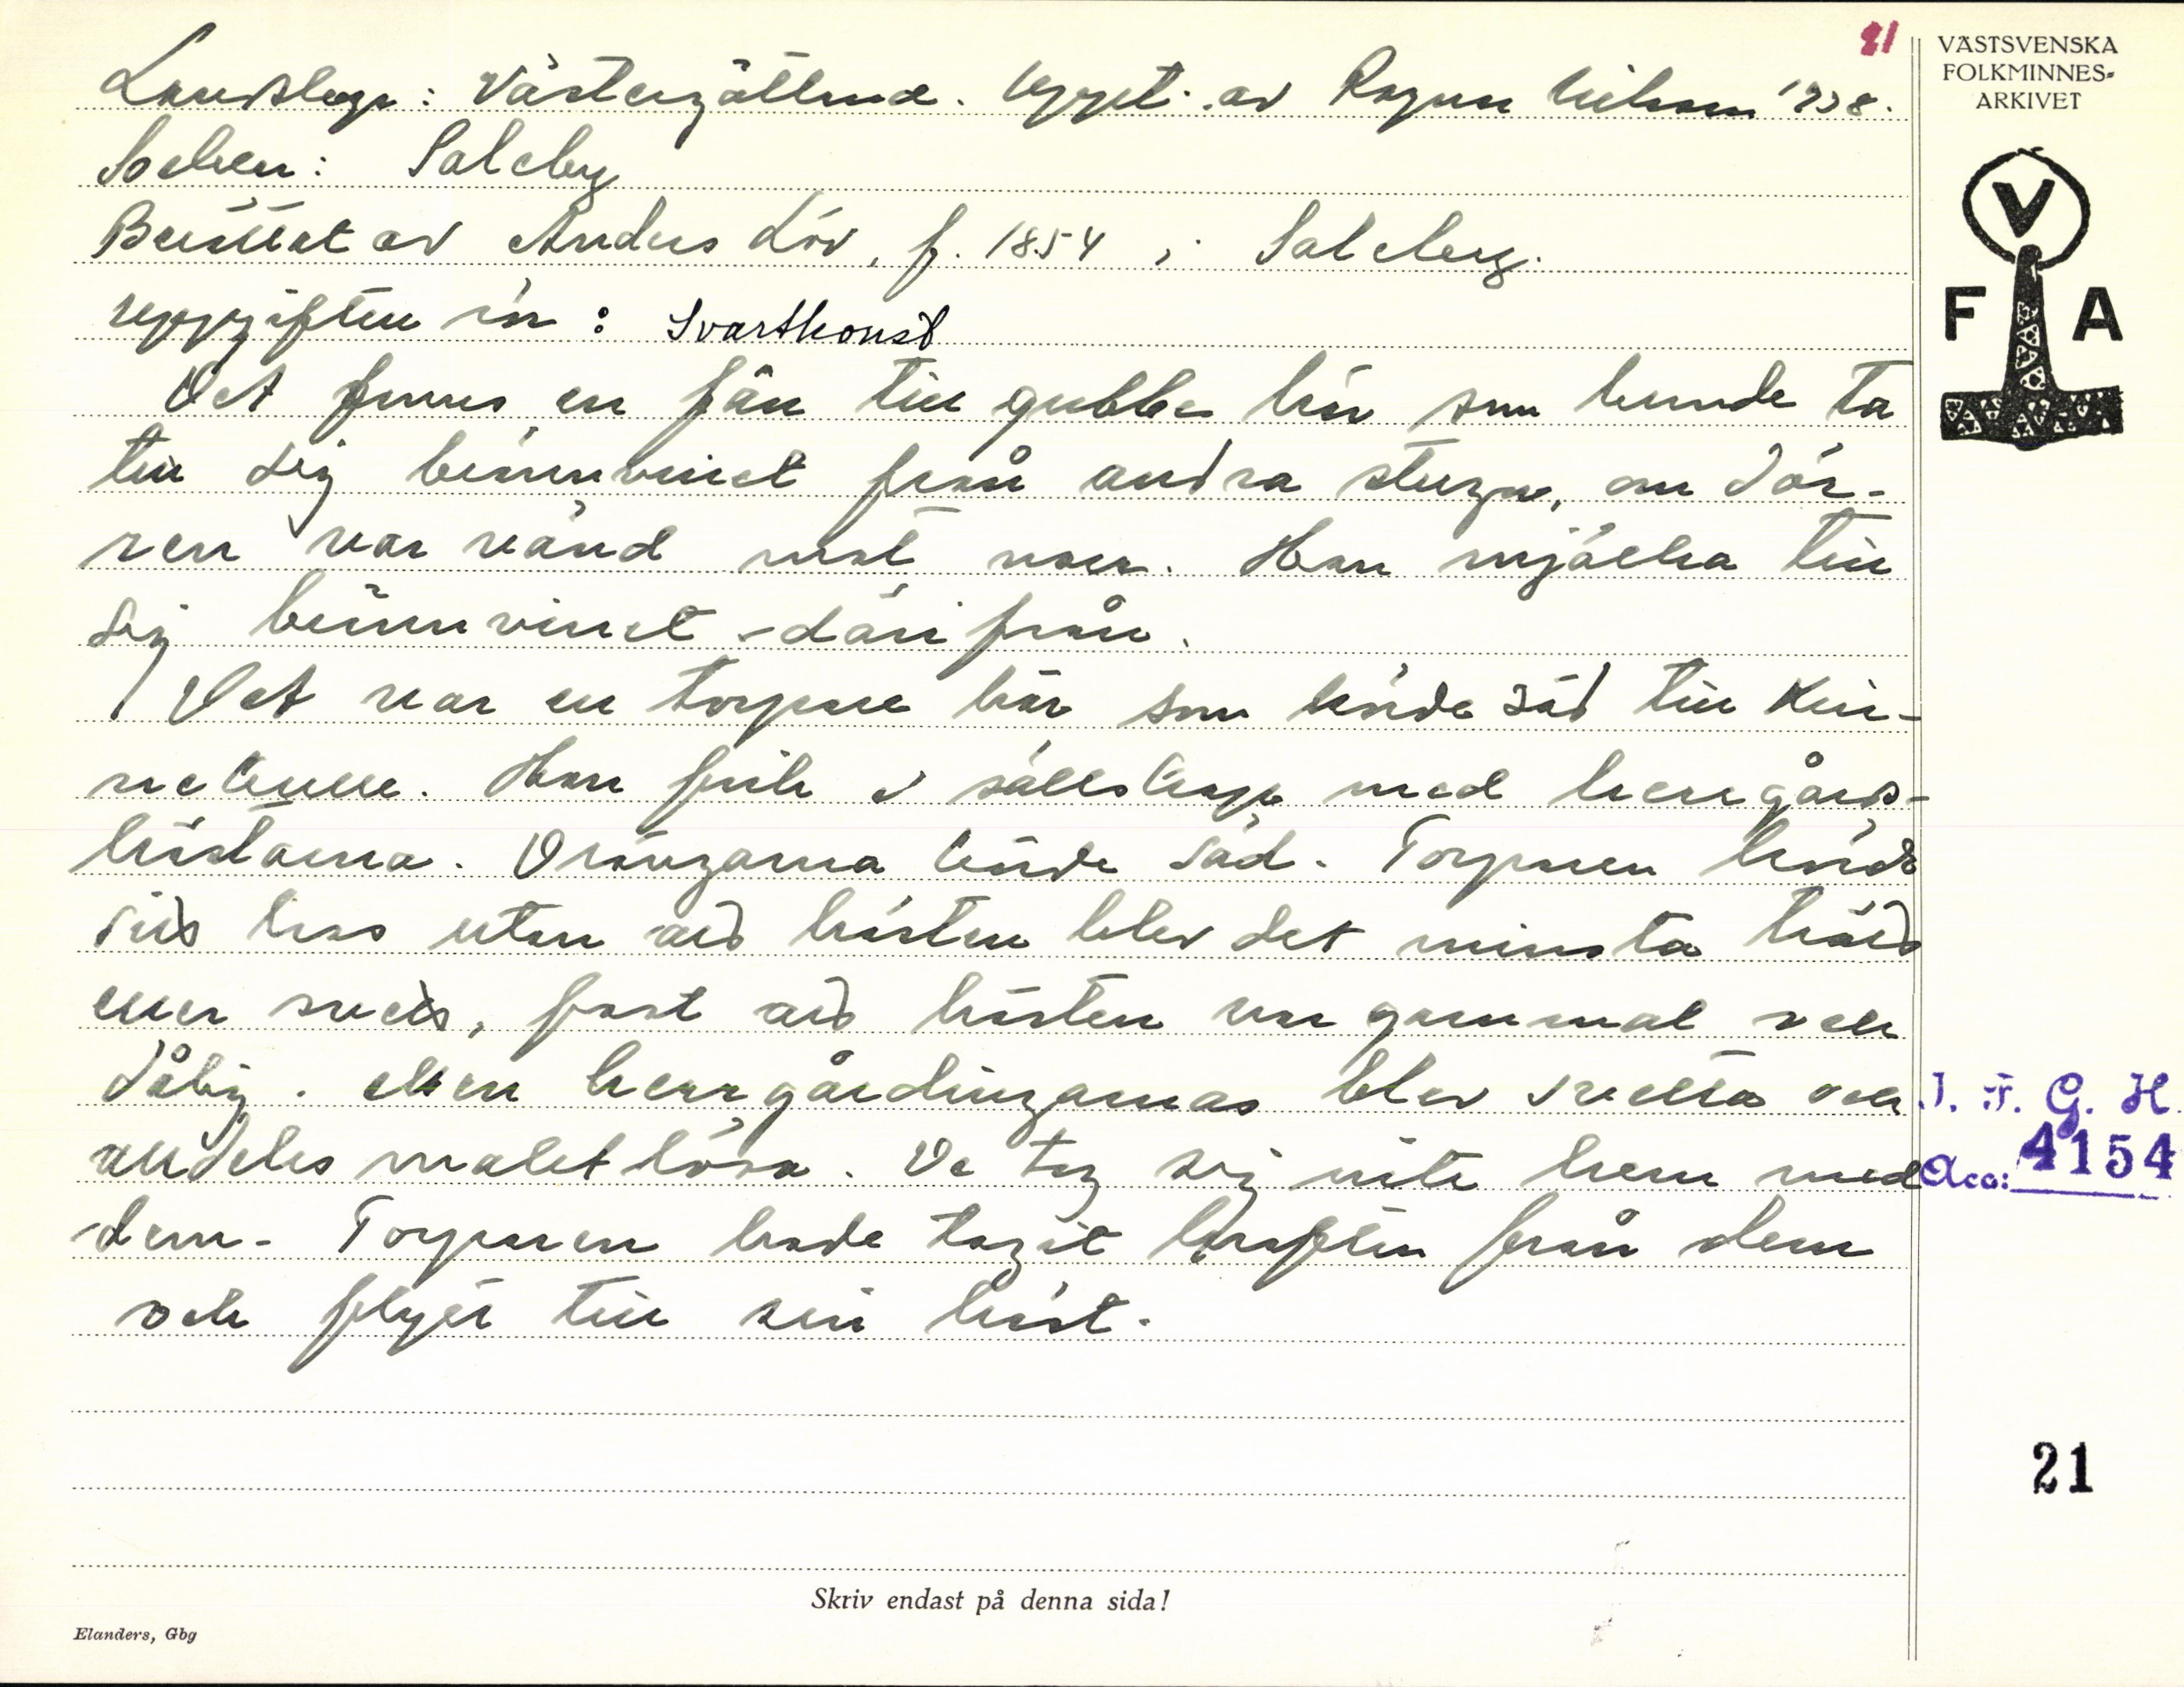 21
VÄSTSVENSKA
FOLKMINNES-
ARKIVET
V
F A
Landskap: Västergötland. Uppt. av Ragnar Nilsson 1938.
Socken: Saleby
Berättat av Anders Löv, f. 1854 i Saleby.
Uppgiften rör: Svartkonst
Det fanns en fän till gubbe här som kunde ta
till sig brännvinet från andra stugor, om dör-
ren var vänd mot norr. Han mjölka till
sig brännvinet därifrån.
Det var en torpare här som körde säd till Kin-
nekulle. Han fick i sällskap med herrgårds-
hästarna. Drängarna körde säd. Torparen körde
sitt lass utan att hästen blev det minsta trött
eller svett, fast att hästen var gammal och
dålig. Men herrgårdingarnas blev svetta och
alldeles maktlösa. De tog sig inte hem med
dem. Torparen hade tagit kraften från dem
och flyjt till sin häst.
I. F. G. H.
Acc: 4154
21
Skriv endast på denna sida!
Elanders, Gbg